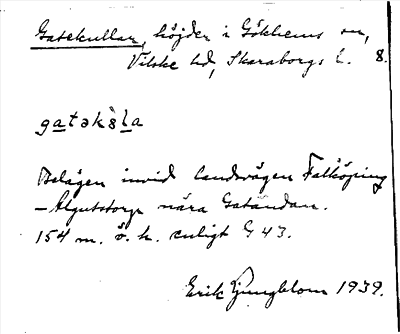 Gatekullar, höjder i Gökhems sn,
Vilske hd, Skaraborgs l. 8.
gatəkəla
Belägen invid landsvägen Falköping
– Ålgutstorp nära Gatändan.
154 m. ö. h. enligt G 43.
Erik Ljungblom 1939.